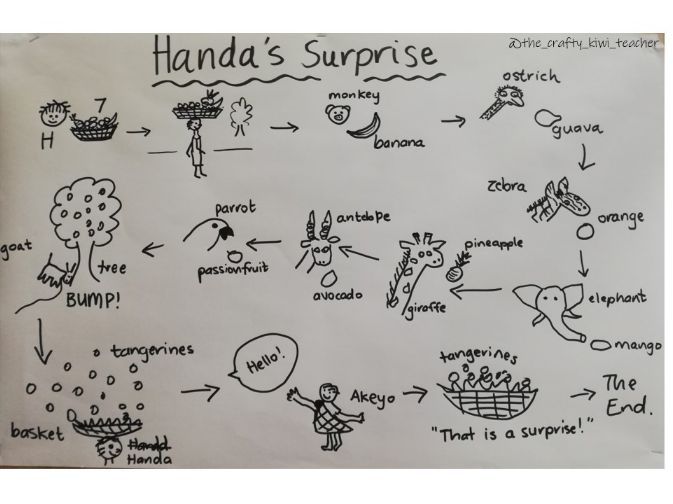 @the_crafty_kiwi_teacher
Handa's Surprise
H
7
monkey
banana
ostrich
guava
zebra
orange
elephant
mango
pineapple
giraffe
antelope
avocado
parrot
passionfruit
goat
tree
BUMP!
tangerines
basket
Handa
Hello!
Akeyo
tangerines
"That is a surprise!"
The
End.